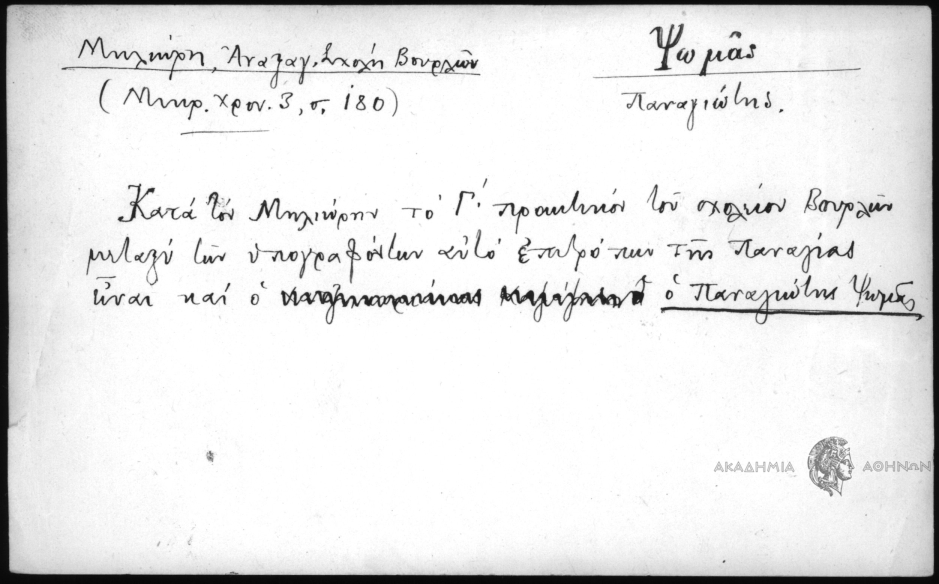 Μηλιώρη, Ἀναξαγ. Σχολή Βουρλῶν
(Μικρ. Χρον. 3, σ. 180)
Ψωμᾶς
Παναγιώτης.
Κατά τόν Μηλιώρην τό Γ΄ πρακτικόν τοῦ σχολείου Βουρλῶν
μεταξύ τῶν ὑπογραφόντων αὐτό ἐπιτρόπων τῆς Παναγίας
εἶναι καί ὁ ὁ Παναγιώτης Ψωμᾶς,
ΑΚΑΔΗΜΙΑ ΑΘΗΝΩΝ